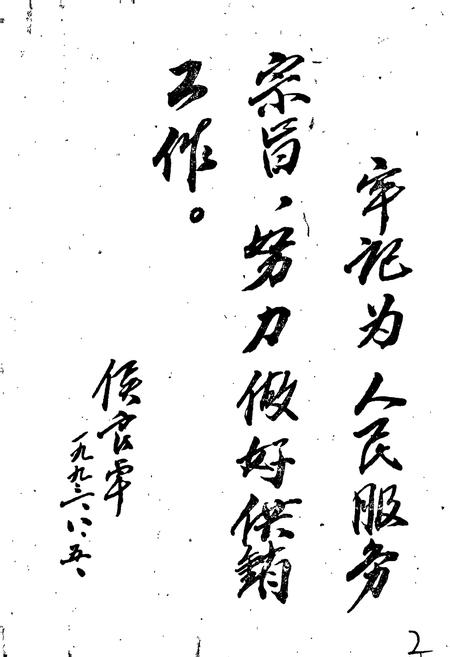 牢记为人民服务
宗旨、努力做好供销
工作。
侯
一九九三、八、五、
2